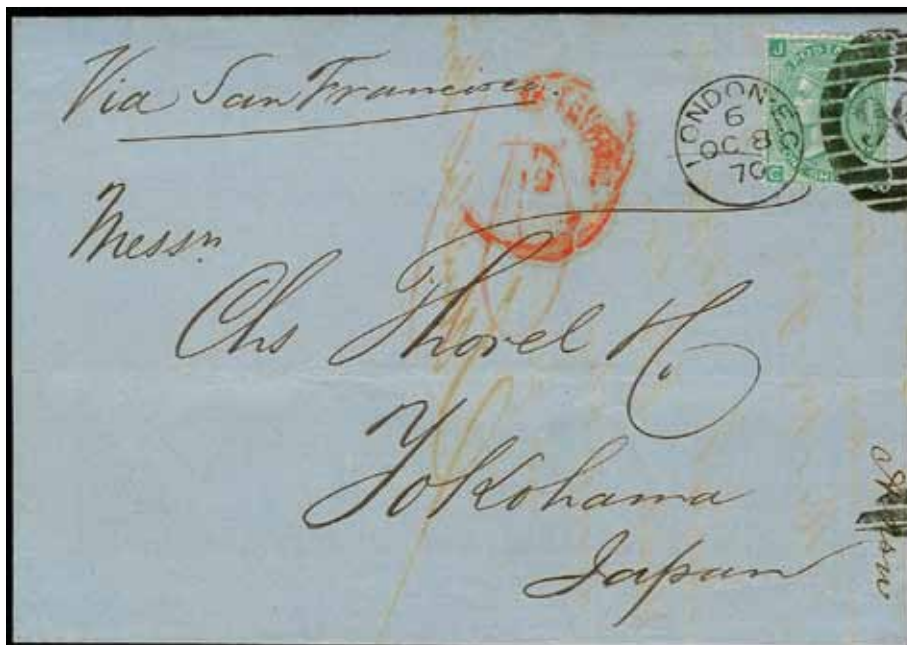 Via San Francisco.
LONDON·E.C
6
OC 8
70
J
G
Messrs
Chs Thorel & Co
Yokohama
Japan